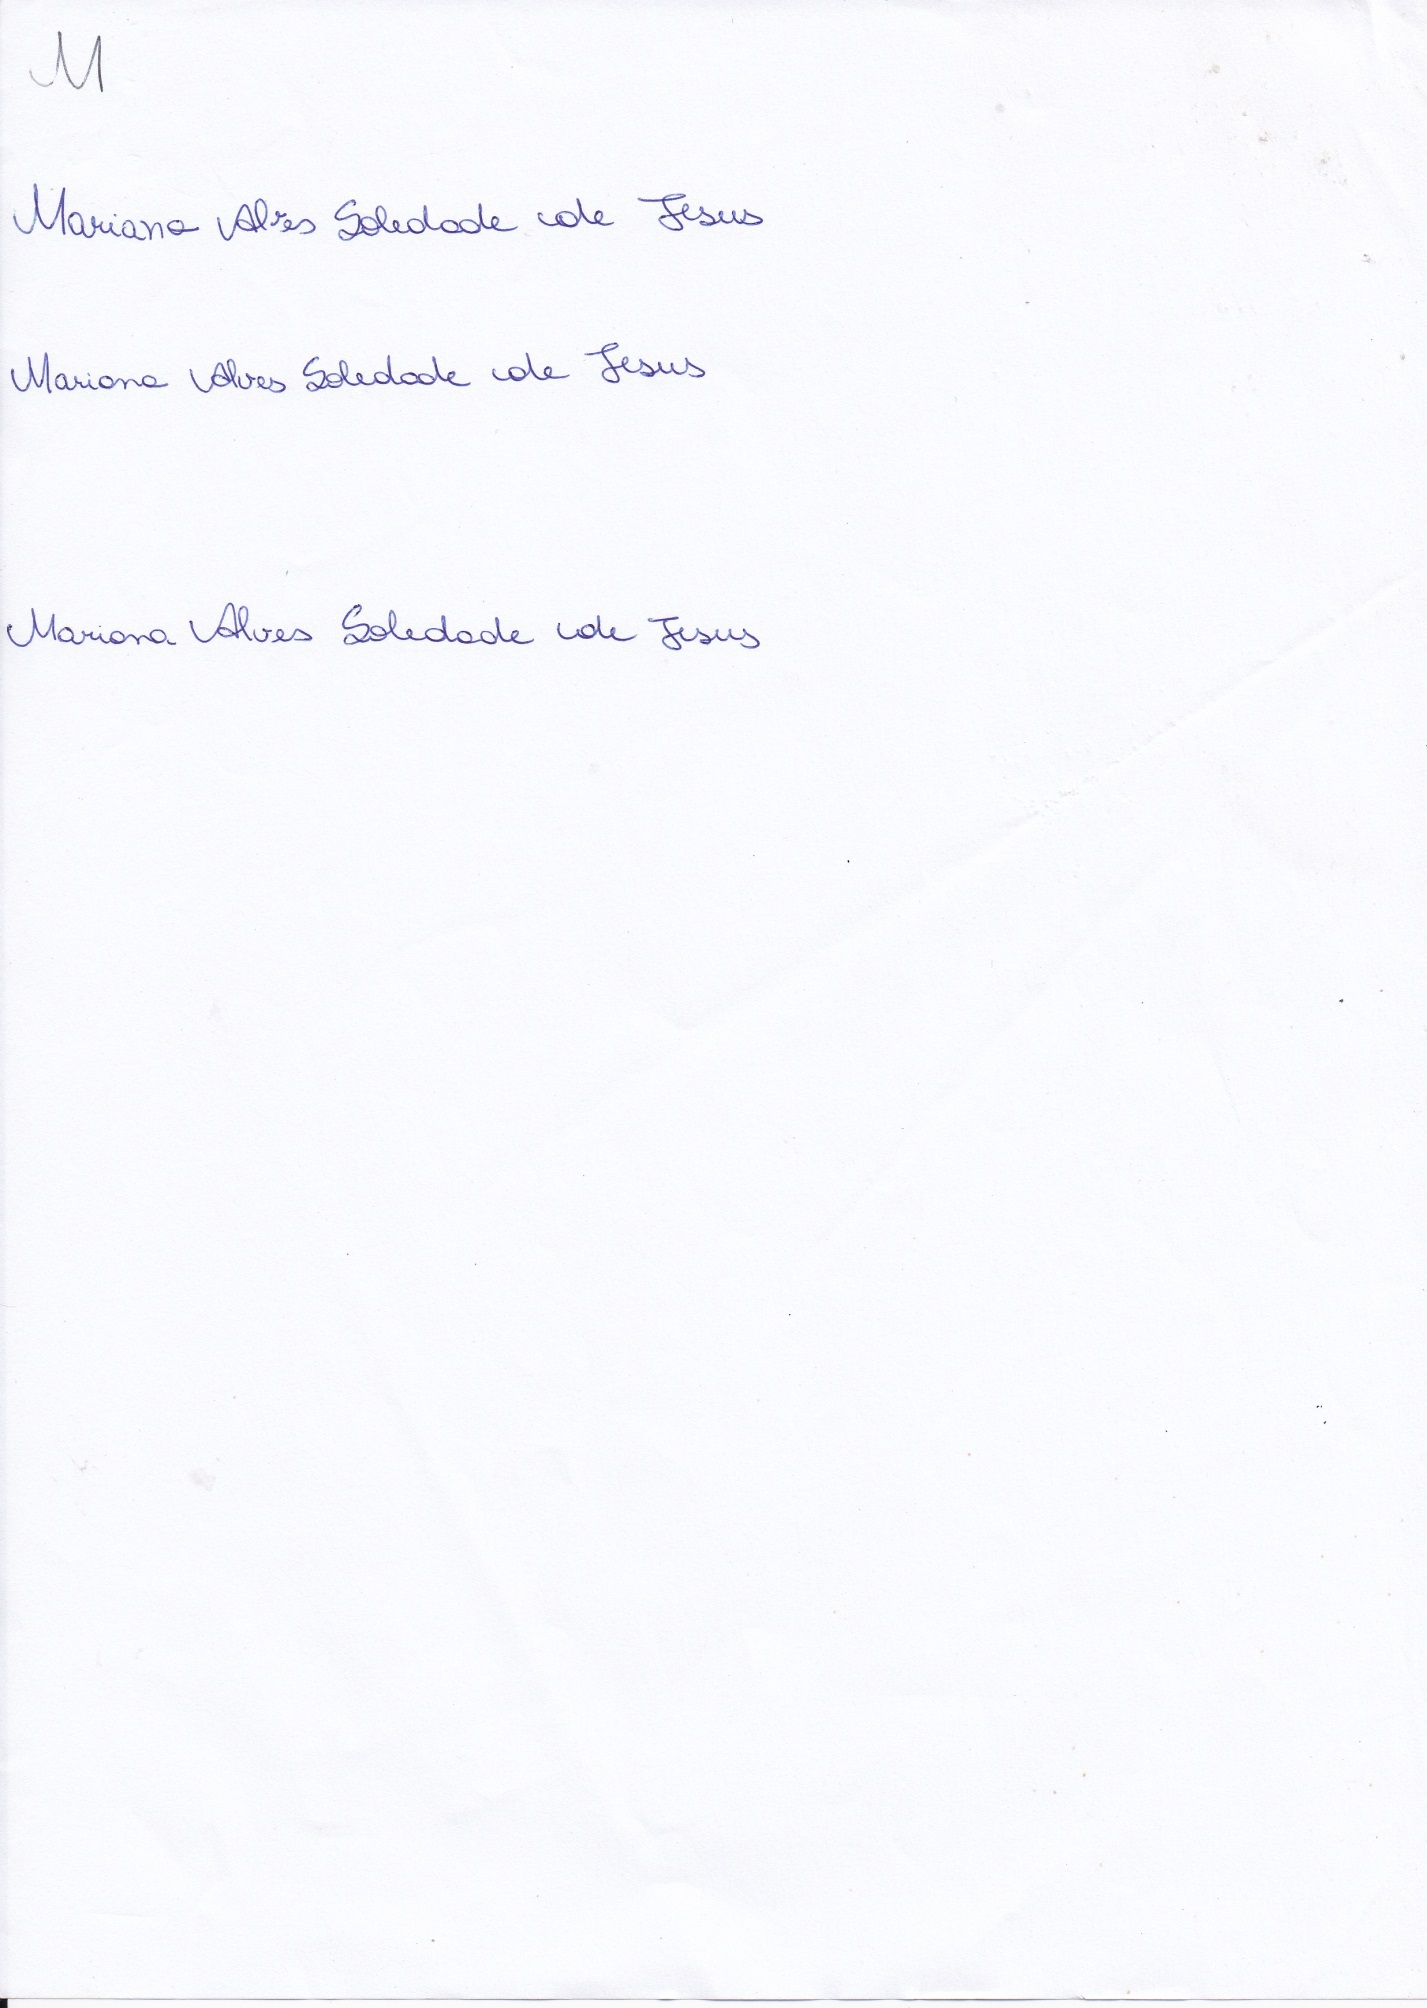 M
Mariana Alves Soledade de Jesus
Mariana Alves Soledade de Jesus
Mariana Alves Soledade de Jesus